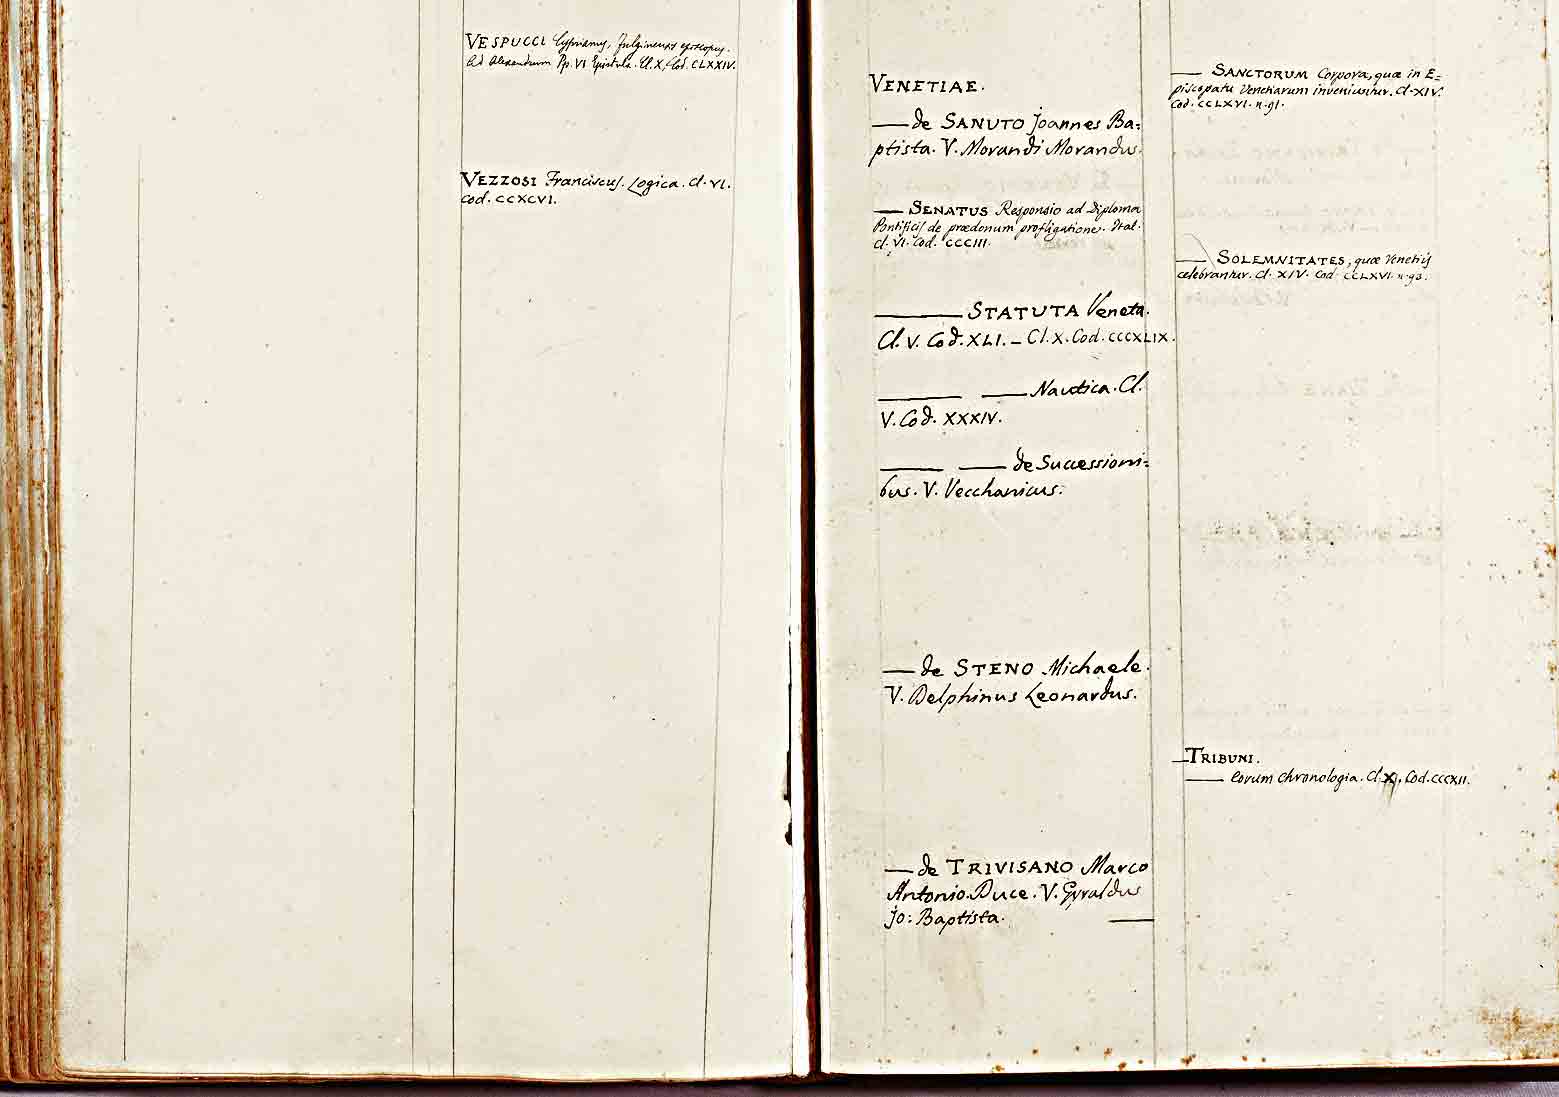 VESPUCCI Cyprianus, Fulginensis episcopus.
Ad Alexandrum Pp. VI Epistola. Cl. X, Cod. CLXXIV.
VEZZOSI Franciscus. Logica. Cl. VI.
Cod. CCXCVI.
VENETIAE.
— de SANUTO Joannes Ba=
ptista. V. Morandi Morandus.
— SENATUS Responsio ad Diploma
Pontificis de praedonum profligatione. Ital.
Cl. VI. Cod. CCCIII.
— STATUTA Veneta.
Cl. V. Cod. XLI. — Cl. X. Cod. CCCXLIX.
— — Nautica. Cl.
V. Cod. XXXIV.
— — de Successioni=
bus. V. Vecchanicus.
— de STENO Michaele.
V. Delphinus Leonardus.
— de TRIVISANO Marco
Antonio Duce. V. Gyraldus
Jo: Baptista. —
— SANCTORUM Corpora, quae in E=
piscopatu Venetiarum inveniuntur. Cl. XIV.
Cod. CCLXVI. n. 91.
— SOLEMNITATES, quae Venetiis
celebrantur. Cl. XIV. Cod. CCLXVI. n. 93.
— TRIBUNI.
— eorum chronologia. Cl. XI, Cod. CCCXII.